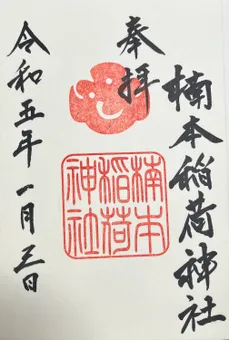 奉拝
楠本稲荷神社
楠本
稲荷
神社
令和五年一月三日